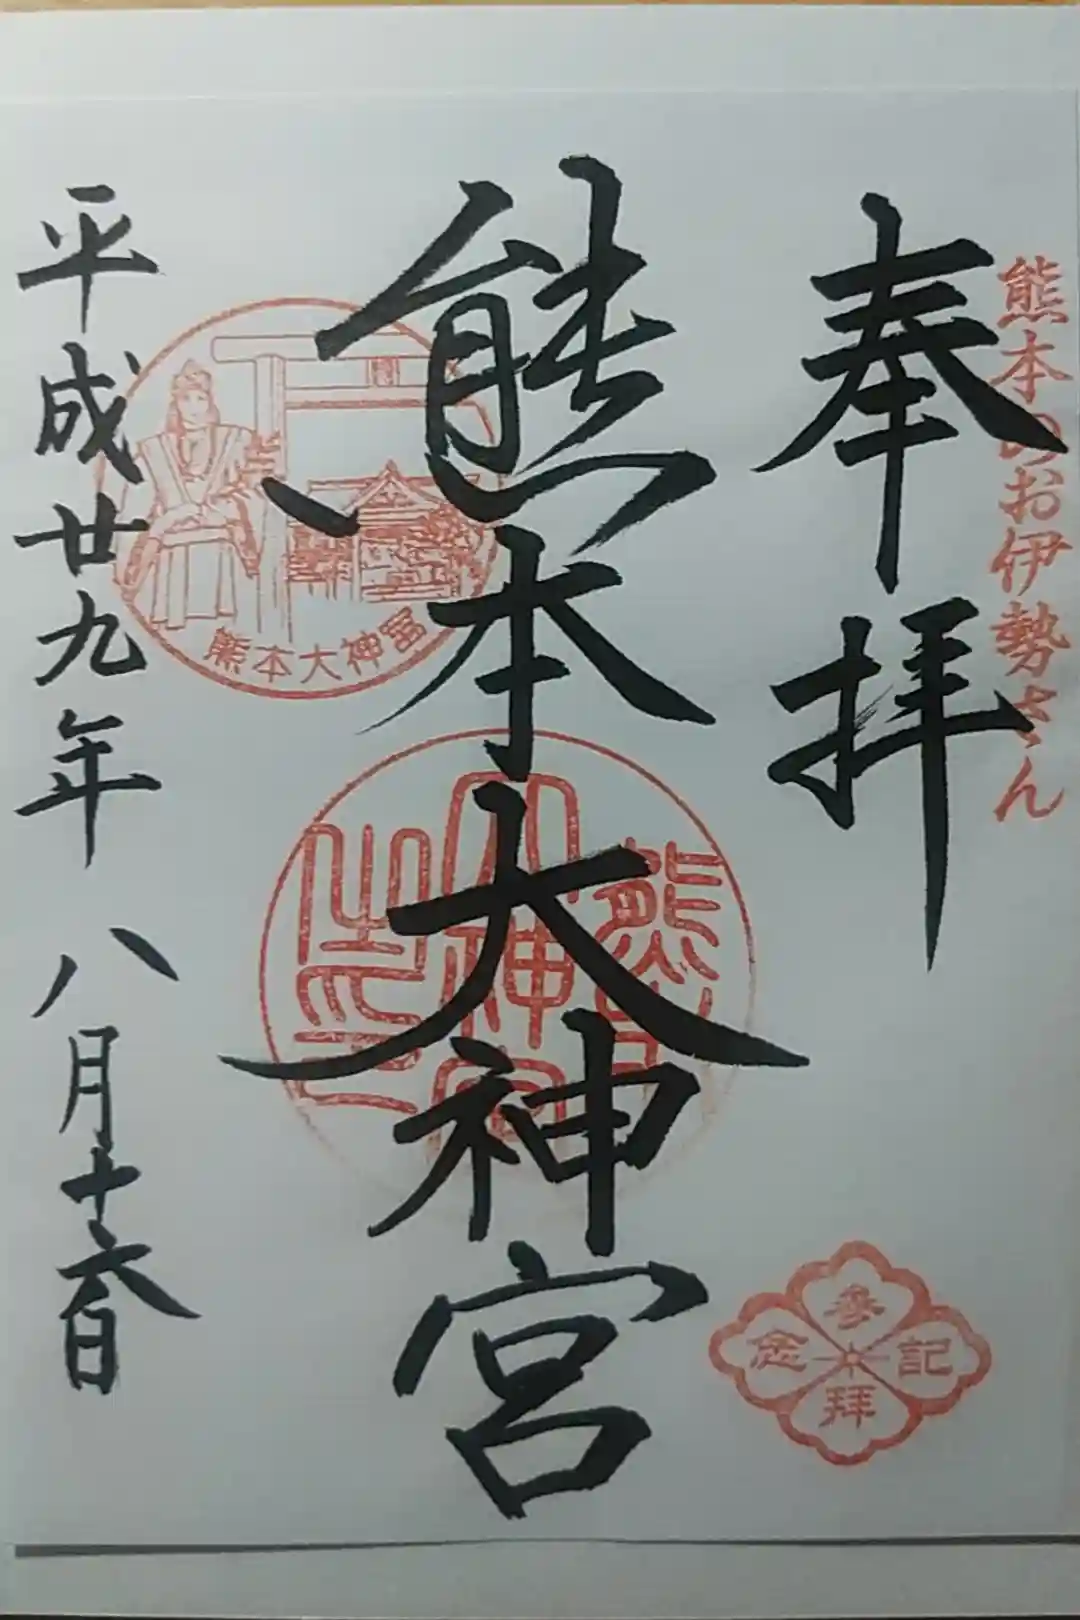 熊本のお伊勢さん
奉拝
熊本大神宮
熊本大神宮
熊本
大神宮
之印
参拝
記念
平成廿九年 八月十六日